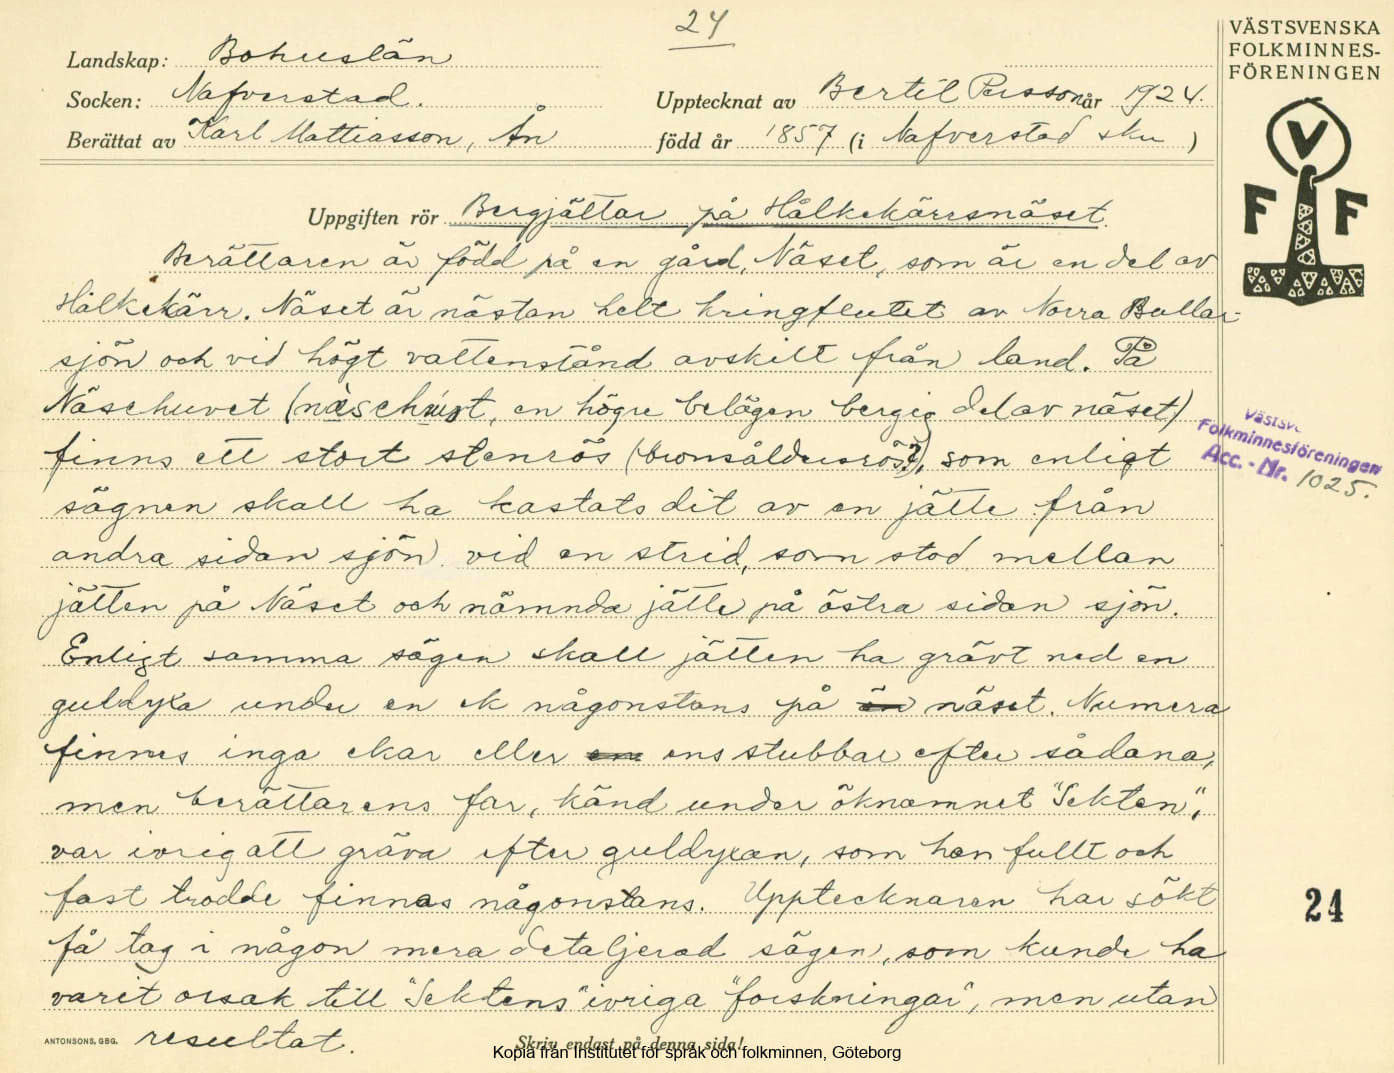 24
VÄSTSVENSKA
FOLKMINNES-
FÖRENINGEN
V
F F
Landskap: Bohuslän
Socken: Nafverstad. Upptecknat av Bertil Persson år 1924.
Berättat av Karl Mattiasson, Ån född år 1857 (i Nafverstad skn )
Uppgiften rör Bergjättar på Hålkekärrsnäset.
Berättaren är född på en gård, Näset, som är en del av
Hålkekärr. Näset är nästan helt kringflutet av Norra Bullar-
sjön och vid högt vattenstånd avskilt från land. På
Näsehuvet (, en högre belägen bergig del av näset)
finns ett stort stenrös (bronsåldersrös?), som enligt
sägnen skall ha kastats dit av en jätte från
andra sidan sjön vid en strid, som stod mellan
jätten på Näset och nämnda jätte på östra sidan sjön.
Enligt samma sägen skall jätten ha grävt ned en
guldyxa under en ek någonstans på näset. Numera
finnes inga ekar eller ens stubbar efter sådana,
men berättarens far, känd under öknamnet "Sekten",
var ivrig att gräva efter guldyxan, som han fullt och
fast trodde finnas någonstans. Upptecknaren har sökt
få tag i någon mera detaljerad sägen, som kunde ha
varit orsak till "Sektens" ivriga "forskningar", men utan
resultat.
Västsv
Folkminnesföreningen
Acc. - Nr. 1025.
24
ANTONSONS, GBG.
Skriv endast på denna sida!
Kopia från Institutet för språk och folkminnen, Göteborg